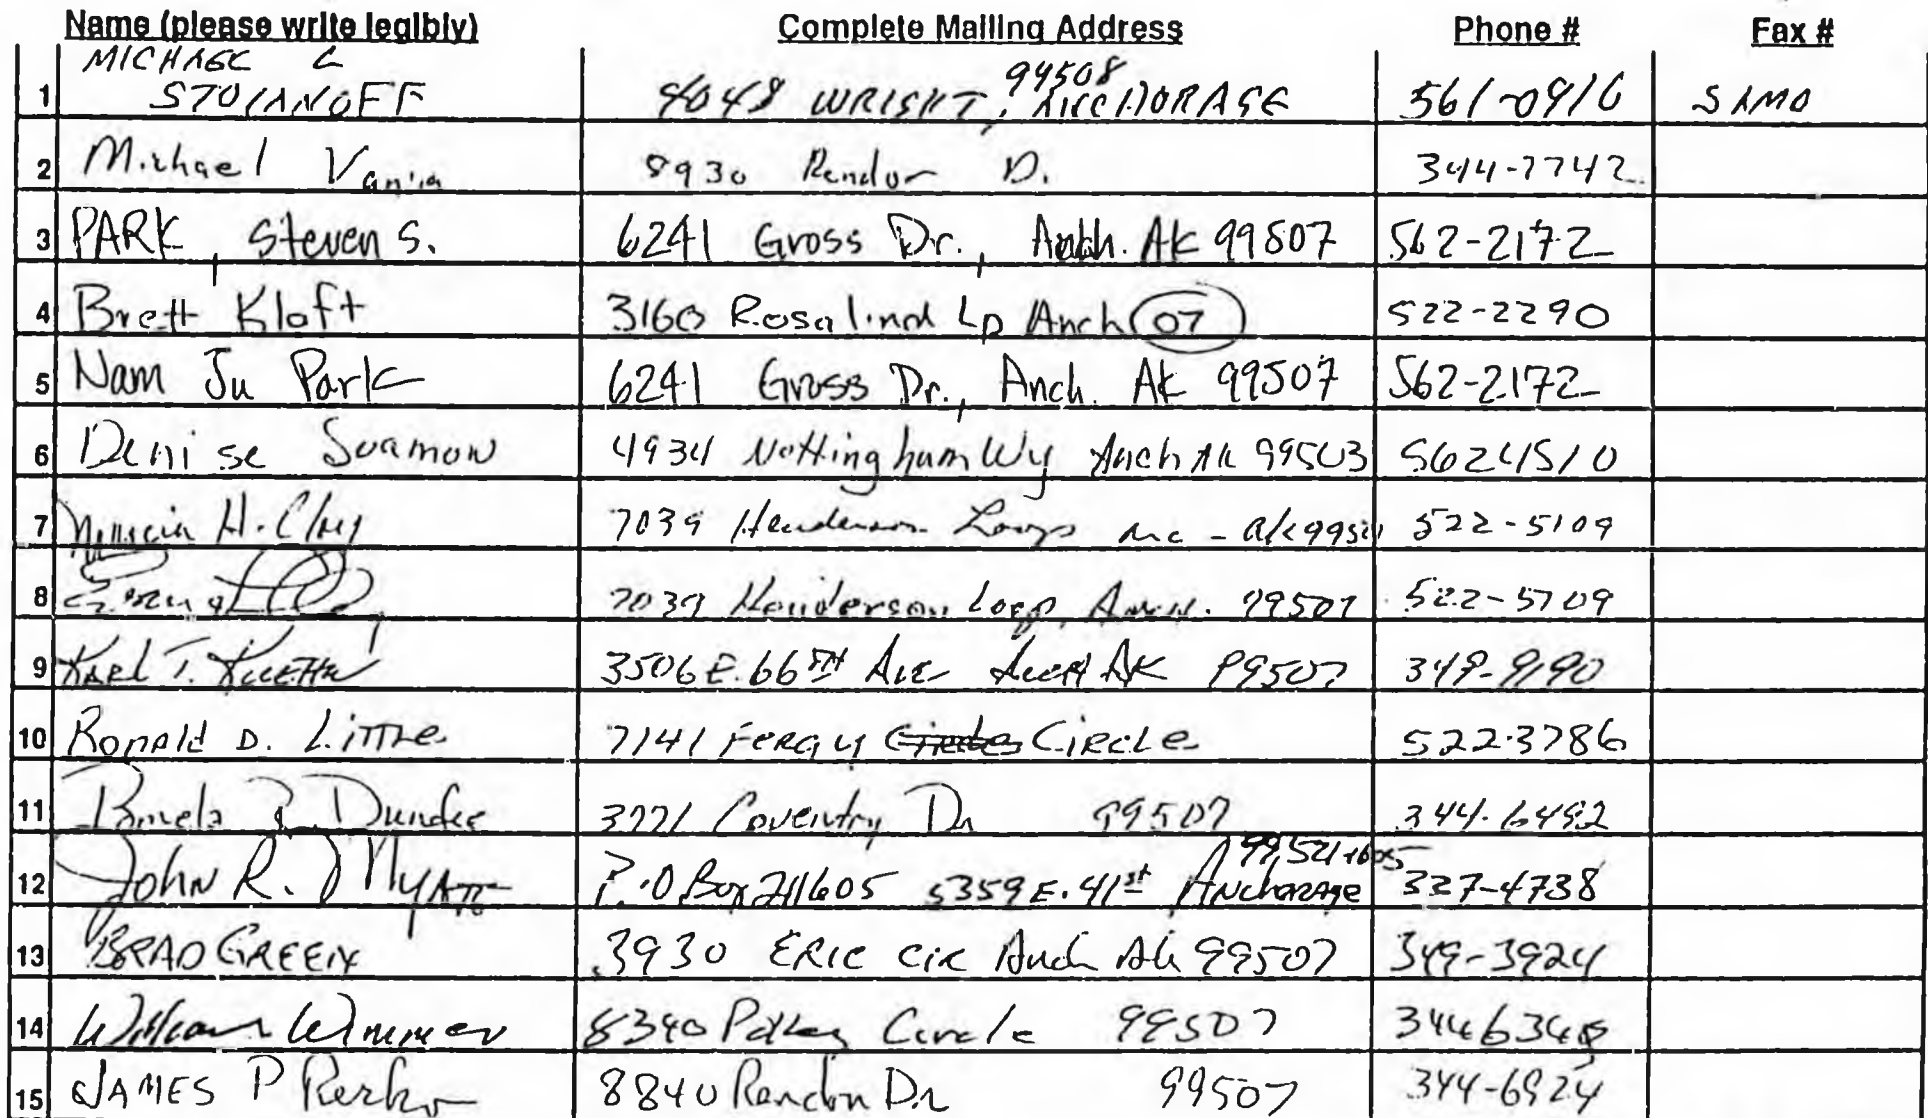 Name (please write legibly) Complete Mailing Address Phone # Fax #
MICHAEL L
1 STOIANOFF 4048 WRIGHT, ANCHORAGE 561-0916 SAME
2 Michael Vania 8930 Rendon D. 344-7742
3 PARK, Steven S. 6241 Gross Dr., Anch. AK 99507 562-2172
4 Brett Kloft 3160 Rosalind Lp Anch 07 522-2290
5 Nam Ju Park 6241 Gross Dr., Anch. AK 99507 562-2172
6 Denise 4934 Nottingham Wy Anch AK 99503 5624510
7 H. 7039 Henderson Loop
8 7039 Henderson Loop, 99507
9 Karl T. 3506 E. 66TH Ave AK 99507 349-9190
10 Ronald D. Little 7141 Fergy Circle 522-3786
11 Pamela Coventry Dr 99507 344-6492
12 John R. Myatt P.O Box 211605 5359 E. 41st Anchorage 99521-1605 327-4738
13 BRAD GREEN 3930 ERIC CIR Anch Ak 99507 349-3924
14 William Wimmer 8340 Circle 99507
15 JAMES P 8840 Rendon Dr 99507 344-6924